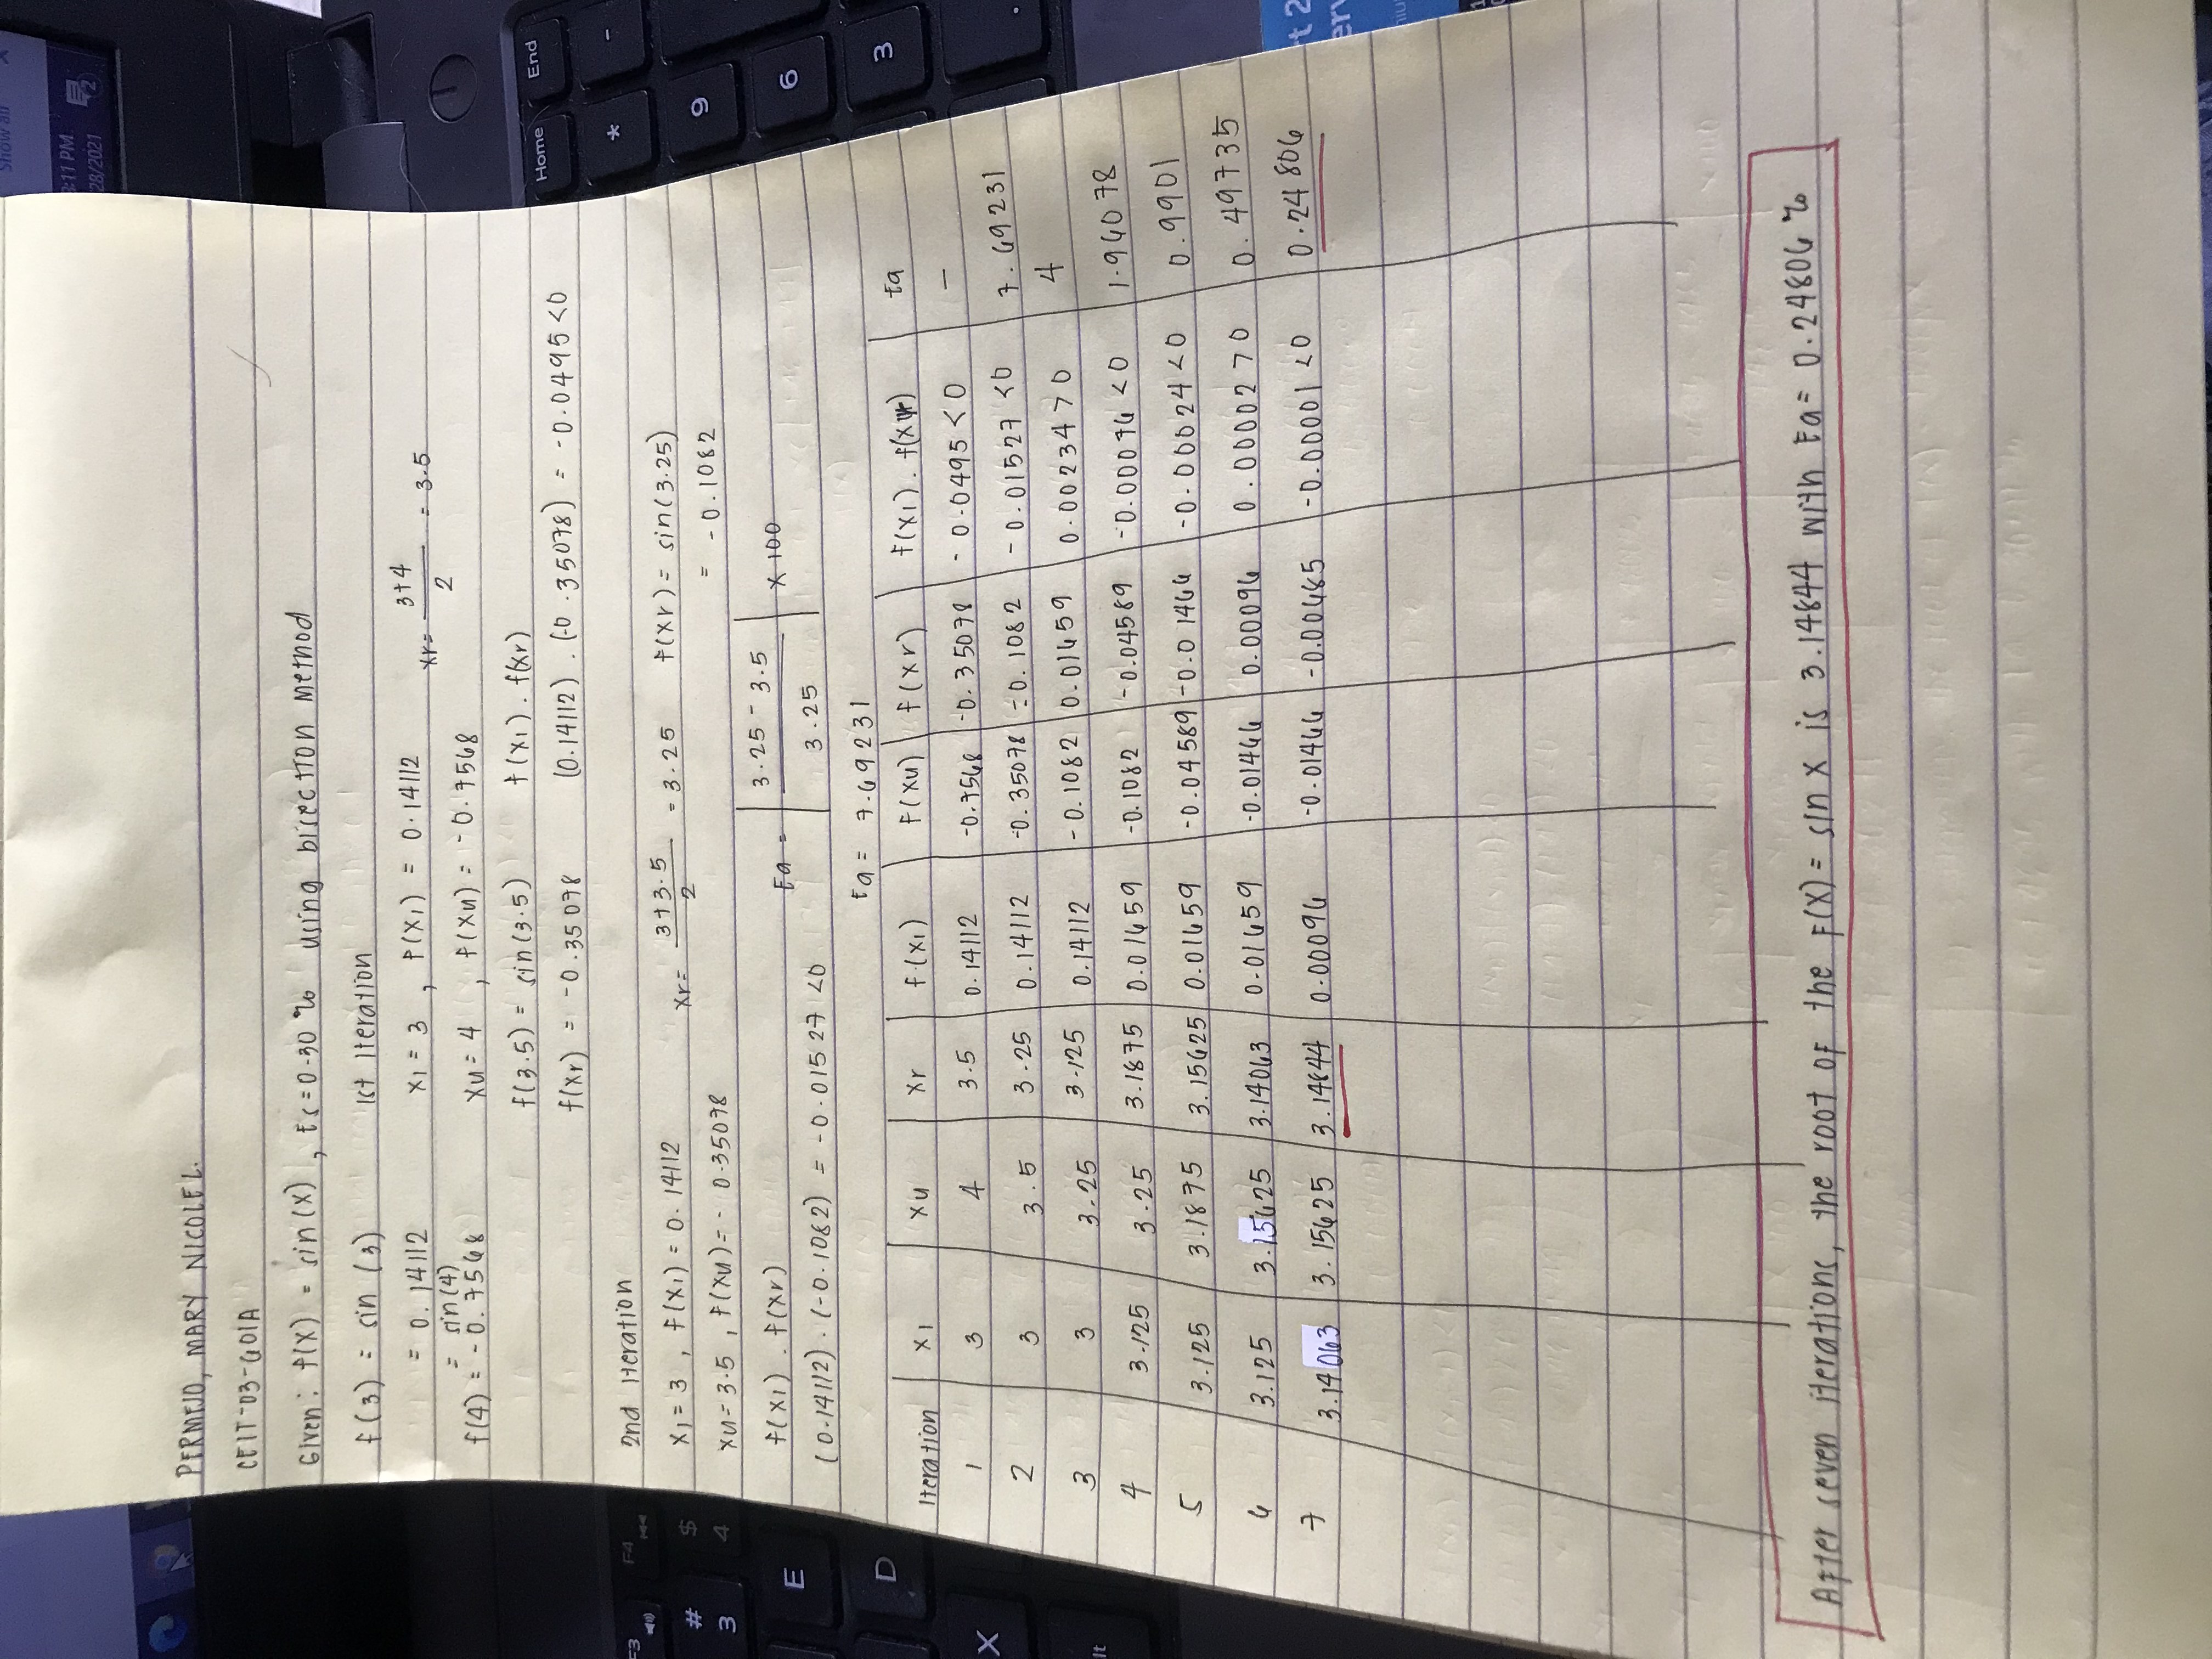 Show all
3:11 PM
28/2021
2
PERMEJO, MARY NICOLE L.
CEIT-03-601A
Given: f(x) = sin(x), Es=0.30 % using bisection method
f(3) = sin (3) 1st Iteration
= 0.14112 x1 = 3 , f(x1) = 0.14112 xr= 3+4 / 2 = 3.5
= sin(4)
f(4) = -0.7568 xu = 4 , f(xu) = -0.7568
f(3.5) = sin(3.5) f(x1) . f(xr)
f(xr) = -0.35078 (0.14112) . (-0.35078) = -0.0495 <0
2nd Iteration
x1 = 3 , f(x1) = 0.14112 xr= 3+3.5 / 2 = 3.25 f(xr) = sin(3.25)
xu=3.5 , f(xu) = - 0.35078 = -0.1082
f(x1) . f(xr) Ea = | 3.25 - 3.5 / 3.25 | x 100
(0.14112) . (-0.1082) = -0.01527 <0
Ea = 7.69231
Iteration x1 xu xr f(x1) f(xu) f(xr) f(x1) . f(xr) Ea
1 3 4 3.5 0.14112 -0.7568 -0.35078 -0.0495 <0 —
2 3 3.5 3.25 0.14112 -0.35078 -0.1082 -0.01527 <0 7.69231
3 3 3.25 3.125 0.14112 -0.1082 0.01659 0.00234 >0 4
4 3.125 3.25 3.1875 0.01659 -0.1082 -0.04589 -0.00076 <0 1.96078
5 3.125 3.1875 3.15625 0.01659 -0.04589 -0.01466 -0.00024 <0 0.9901
6 3.125 3.15625 3.14063 0.01659 -0.01466 0.00096 0.00002 >0 0.49735
7 3.14063 3.15625 3.14844 0.00096 -0.01466 -0.00685 -0.00001 <0 0.24806
After seven iterations, the root of the F(x) = sin x is 3.14844 with Ea = 0.24806 %
Home
End
*
-
9
6
3
.
F3
F4
#
3
$
4
E
D
X